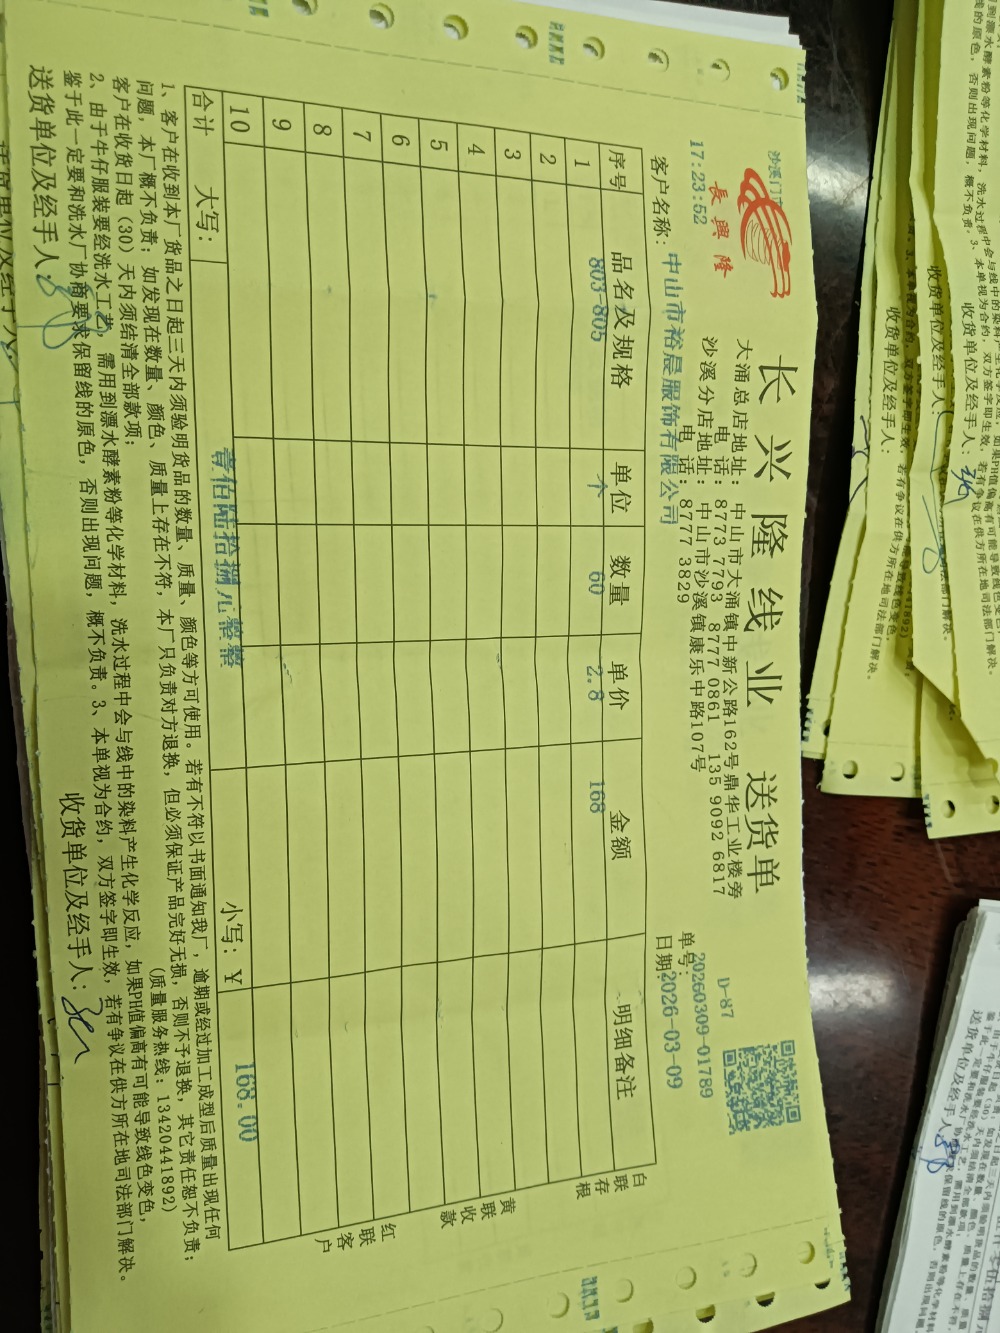 沙溪门市
長興隆
长兴隆线业 送货单
大涌总店地址：中山市大涌镇中新公路162号鼎华工业楼旁
电 话：8773 7793 8777 0861 135 9092 6817
沙溪分店地址：中山市沙溪镇康乐中路107号
电 话：8777 3829
17:23:52
D-87
单号：20260309-01789
日期：2026-03-09
客户名称：中山市裕晨服饰有限公司
序号 品名及规格 单位 数量 单价 金额 明细备注
1 803-805 个 60 2.8 168
2
3
4
5
6
7
8
9
10
合计 大写：壹佰陆拾捌元整 小写：¥ 168.00
白联存根
黄联收款
红联客户
1、客户在收到本厂货品之日起三天内须验明货品的数量、质量、颜色等方可使用。若有不符以书面通知我厂，逾期或经过加工成型后质量出现任何
问题，本厂概不负责；如发现在数量、颜色、质量上存在不符，本厂只负责对方退换，但必须保证产品完好无损，否则不予退换，其它责任恕不负责；
客户在收货日起（30）天内须结清全部款项； (质量服务热线：13420441892)
2、由于牛仔服装要经洗水工艺，需用到漂水酵素粉等化学材料，洗水过程中会与线中的染料产生化学反应，如果PH值偏高有可能导致线色变色，
鉴于此一定要和洗水厂协商要求保留线的原色，否则出现问题，概不负责。3、本单视为合约，双方签字即生效，若有争议在供方所在地司法部门解决。
送货单位及经手人： 收货单位及经手人：
收货单位及经手人：
收货单位及经手人：